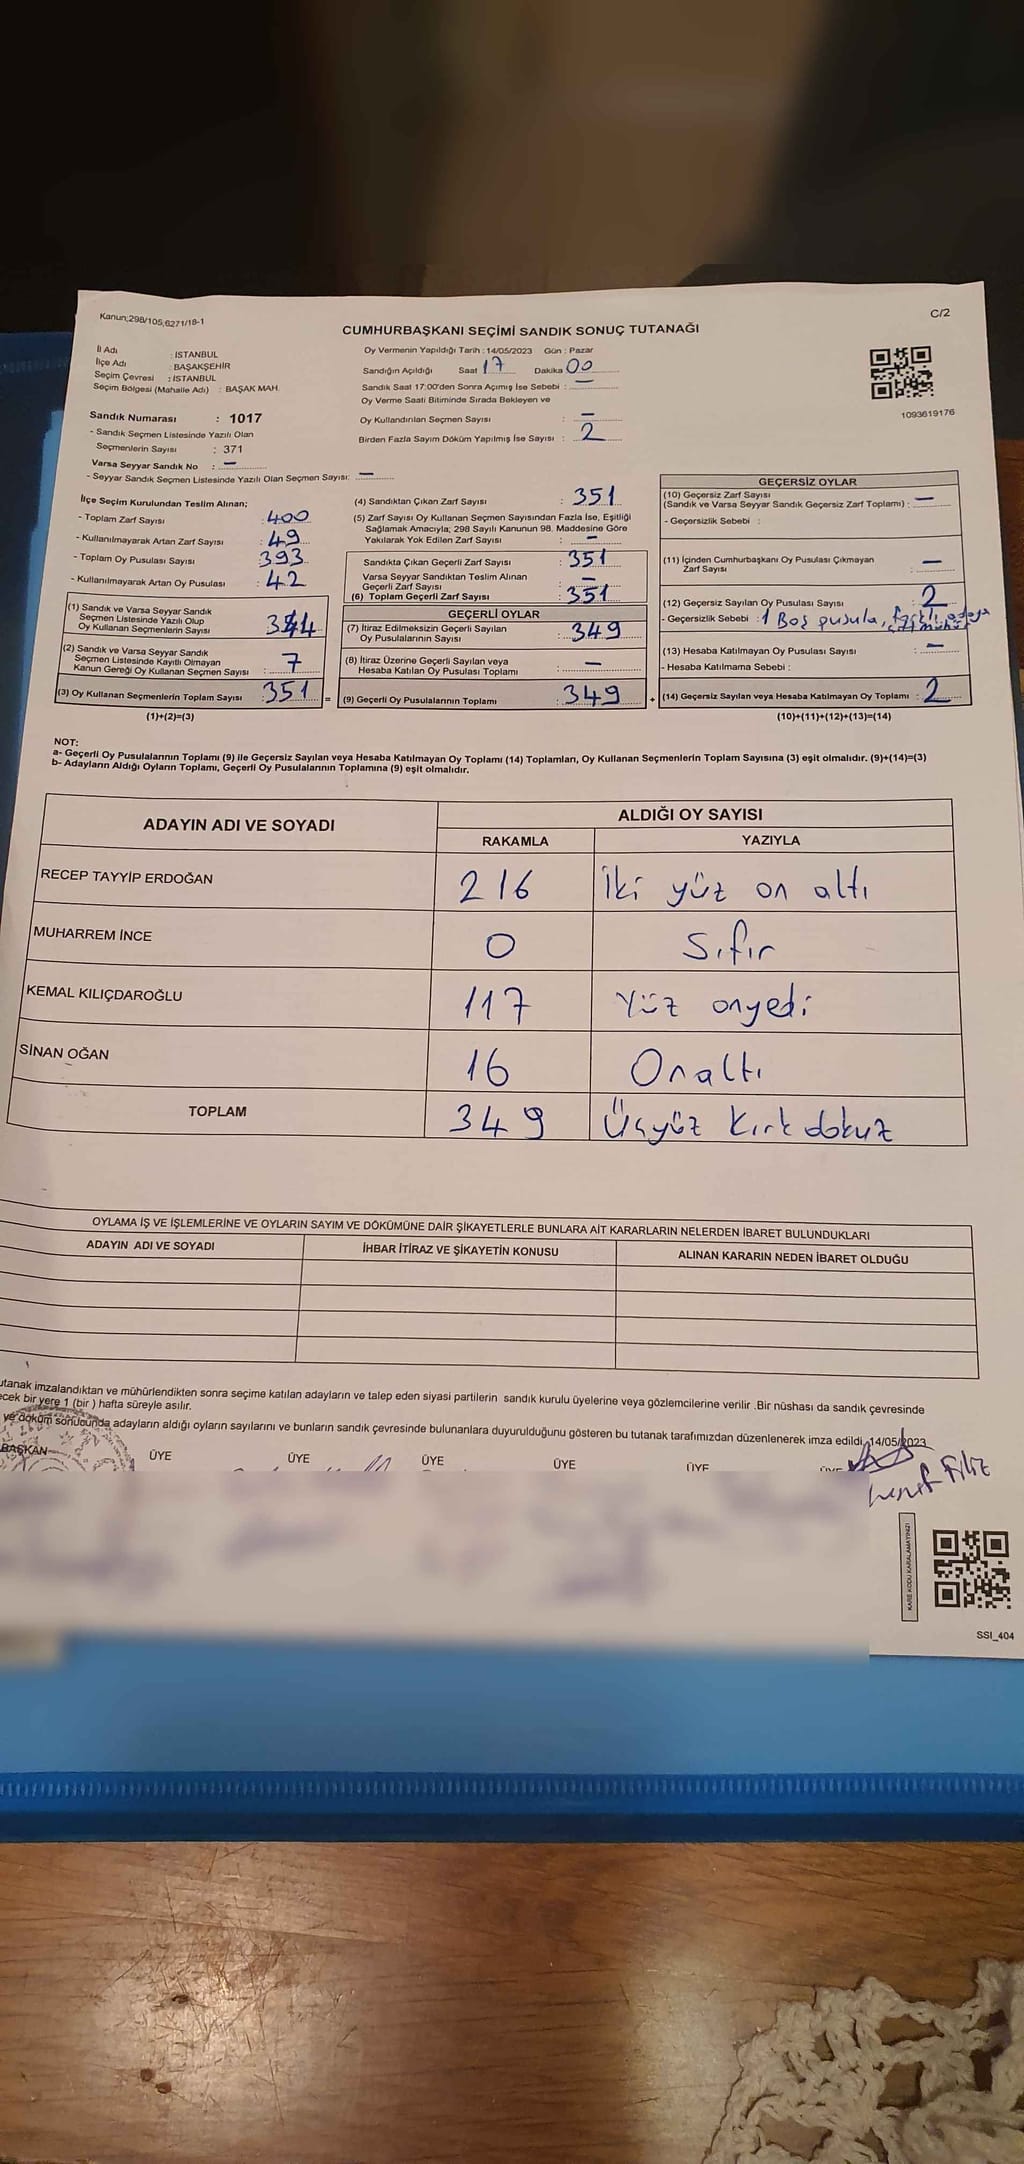 Kanun;298/105,6271/18-1
C/2
CUMHURBAŞKANI SEÇİMİ SANDIK SONUÇ TUTANAĞI
İl Adı : İSTANBUL
İlçe Adı : BAŞAKŞEHİR
Seçim Çevresi : İSTANBUL
Seçim Bölgesi (Mahalle Adı) : BAŞAK MAH.
Sandık Numarası : 1017
- Sandık Seçmen Listesinde Yazılı Olan
Seçmenlerin Sayısı : 371
Varsa Seyyar Sandık No : —
- Seyyar Sandık Seçmen Listesinde Yazılı Olan Seçmen Sayısı: —
Oy Vermenin Yapıldığı Tarih : 14/05/2023 Gün : Pazar
Sandığın Açıldığı Saat 17 Dakika 00
Sandık Saat 17:00'den Sonra Açımış İse Sebebi : —
Oy Verme Saati Bitiminde Sırada Bekleyen ve
Oy Kullandırılan Seçmen Sayısı : —
Birden Fazla Sayım Döküm Yapılmış İse Sayısı : 2
1093619176
İlçe Seçim Kurulundan Teslim Alınan;
- Toplam Zarf Sayısı : 400
- Kullanılmayarak Artan Zarf Sayısı : 49
- Toplam Oy Pusulası Sayısı : 393
- Kullanılmayarak Artan Oy Pusulası : 42
(1) Sandık ve Varsa Seyyar Sandık
Seçmen Listesinde Yazılı Olup
Oy Kullanan Seçmenlerin Sayısı : 344
(2) Sandık ve Varsa Seyyar Sandık
Seçmen Listesinde Kayıtlı Olmayan
Kanun Gereği Oy Kullanan Seçmen Sayısı : 7
(3) Oy Kullanan Seçmenlerin Toplam Sayısı : 351 =
(1)+(2)=(3)
(4) Sandıktan Çıkan Zarf Sayısı : 351
(5) Zarf Sayısı Oy Kullanan Seçmen Sayısından Fazla İse, Eşitliği
Sağlamak Amacıyla; 298 Sayılı Kanunun 98. Maddesine Göre
Yakılarak Yok Edilen Zarf Sayısı : —
Sandıkta Çıkan Geçerli Zarf Sayısı : 351
Varsa Seyyar Sandıktan Teslim Alınan
Geçerli Zarf Sayısı : —
(6) Toplam Geçerli Zarf Sayısı : 351
GEÇERLİ OYLAR
(7) İtiraz Edilmeksizin Geçerli Sayılan
Oy Pusulalarının Sayısı : 349
(8) İtiraz Üzerine Geçerli Sayılan veya
Hesaba Katılan Oy Pusulası Toplamı : —
(9) Geçerli Oy Pusulalarının Toplamı : 349 +
GEÇERSİZ OYLAR
(10) Geçersiz Zarf Sayısı
(Sandık ve Varsa Seyyar Sandık Geçersiz Zarf Toplamı) : —
- Geçersizlik Sebebi :
(11) İçinden Cumhurbaşkanı Oy Pusulası Çıkmayan
Zarf Sayısı : —
(12) Geçersiz Sayılan Oy Pusulası Sayısı : 2
- Geçersizlik Sebebi : 1 Boş pusula,
(13) Hesaba Katılmayan Oy Pusulası Sayısı : —
- Hesaba Katılmama Sebebi :
(14) Geçersiz Sayılan veya Hesaba Katılmayan Oy Toplamı : 2
(10)+(11)+(12)+(13)=(14)
NOT:
a- Geçerli Oy Pusulalarının Toplamı (9) ile Geçersiz Sayılan veya Hesaba Katılmayan Oy Toplamı (14) Toplamları, Oy Kullanan Seçmenlerin Toplam Sayısına (3) eşit olmalıdır. (9)+(14)=(3)
b- Adayların Aldığı Oyların Toplamı, Geçerli Oy Pusulalarının Toplamına (9) eşit olmalıdır.
ADAYIN ADI VE SOYADI
ALDIĞI OY SAYISI
RAKAMLA YAZIYLA
RECEP TAYYİP ERDOĞAN 216 İki yüz on altı
MUHARREM İNCE 0 Sıfır
KEMAL KILIÇDAROĞLU 117 Yüz onyedi
SİNAN OĞAN 16 Onaltı
TOPLAM 349 Üçyüz Kırk dokuz
OYLAMA İŞ VE İŞLEMLERİNE VE OYLARIN SAYIM VE DÖKÜMÜNE DAİR ŞİKAYETLERLE BUNLARA AİT KARARLARIN NELERDEN İBARET BULUNDUKLARI
ADAYIN ADI VE SOYADI İHBAR İTİRAZ VE ŞİKAYETİN KONUSU ALINAN KARARIN NEDEN İBARET OLDUĞU
utanak imzalandıktan ve mühürlendikten sonra seçime katılan adayların ve talep eden siyasi partilerin sandık kurulu üyelerine veya gözlemcilerine verilir .Bir nüshası da sandık çevresinde
ecek bir yere 1 (bir ) hafta süreyle asılır.
ve döküm sonucunda adayların aldığı oyların sayılarını ve bunların sandık çevresinde bulunanlara duyurulduğunu gösteren bu tutanak tarafımızdan düzenlenerek imza edildi. 14/05/2023
BAŞKAN ÜYE ÜYE ÜYE ÜYE ÜYE ÜYE
Filiz
KARE KODU KARALAMAYINIZ!
SSI_404